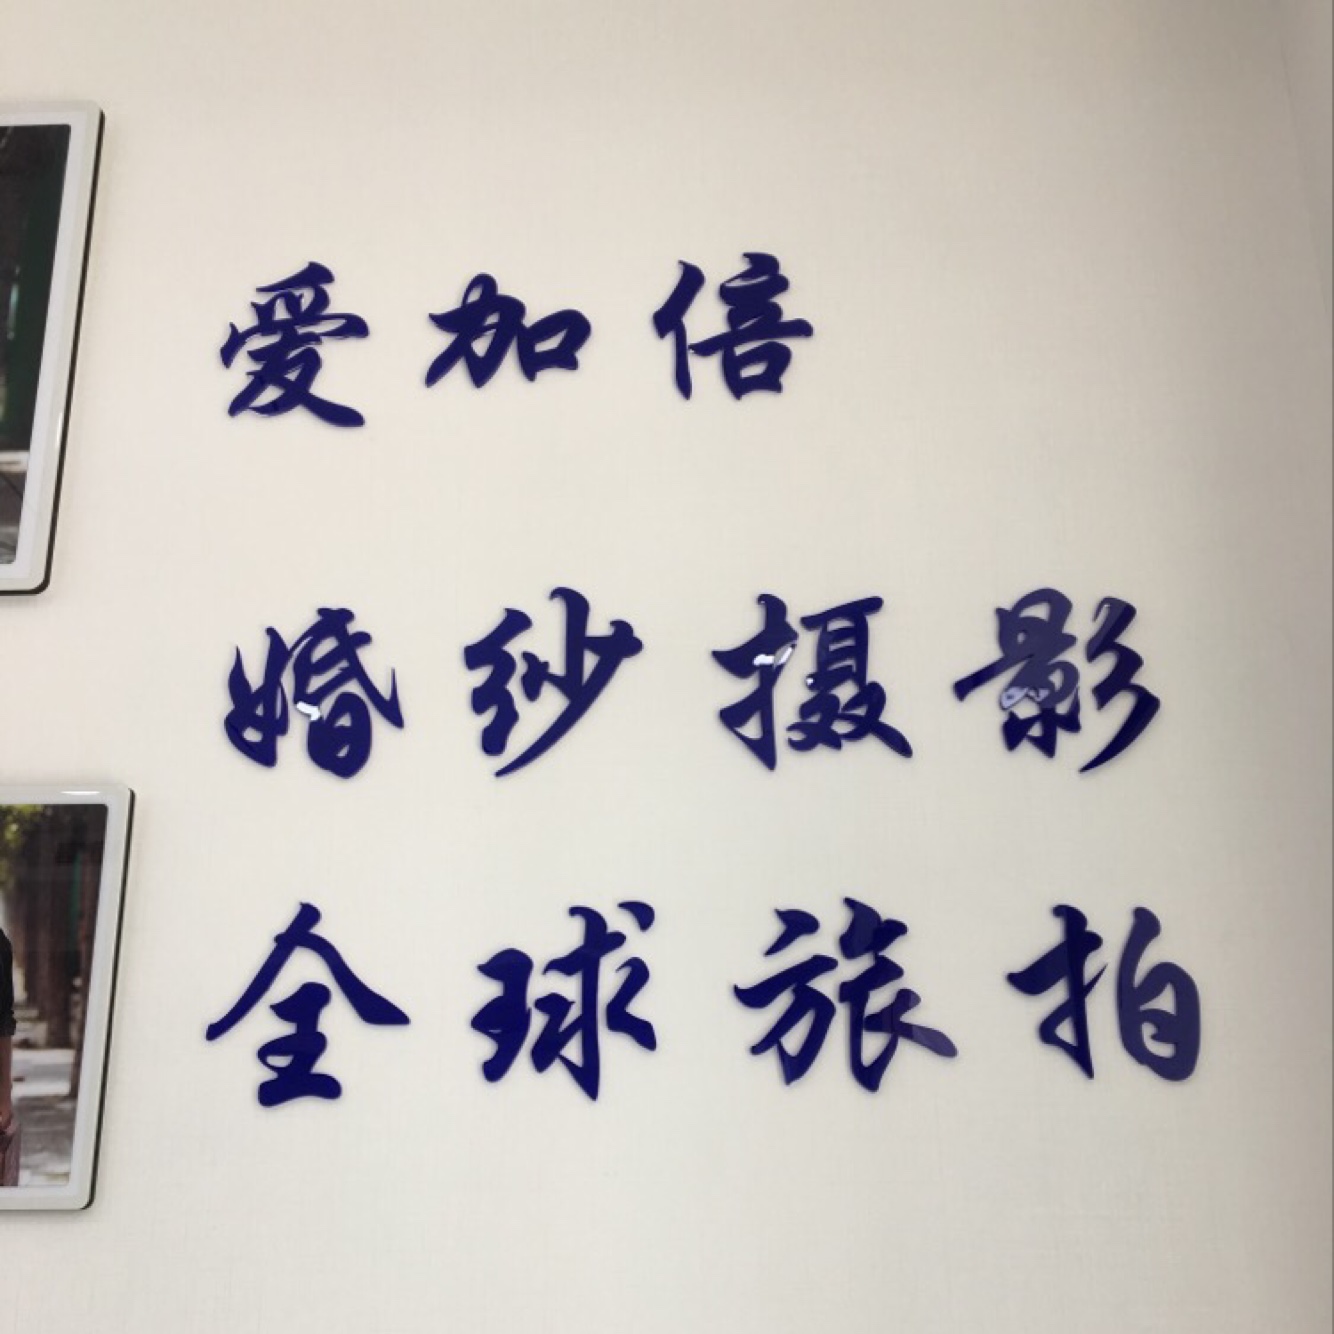 爱加倍
婚纱摄影
全球旅拍